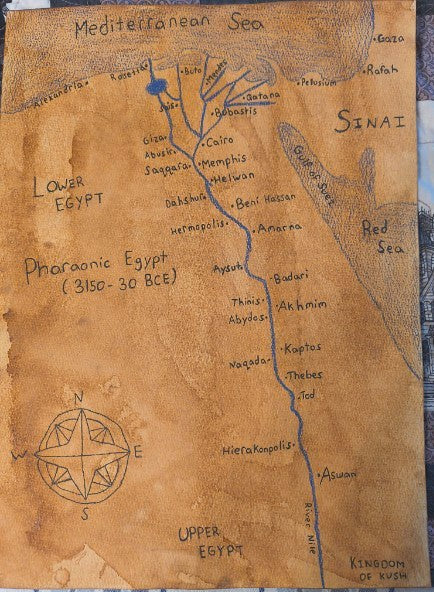 Mediterranean Sea
Gaza
Rosetta
Buto
Mendes
Rafah
Alexandria
Pelusium
Qatana
Sais
Bubastis
SINAI
Giza
Cairo
Abusir
Gulf of Suez
Saqqara
Memphis
Helwan
LOWER
EGYPT
Dahshur
Beni Hassan
Hermopolis
Amarna
Red
Sea
Pharaonic Egypt
(3150-30 BCE)
Aysut
Badari
Thinis
Akhmim
Abydos
Kaptos
Naqada
Thebes
Tod
N
W
E
S
Hierakonpolis
Aswan
River Nile
UPPER
EGYPT
KINGDOM
OF KUSH